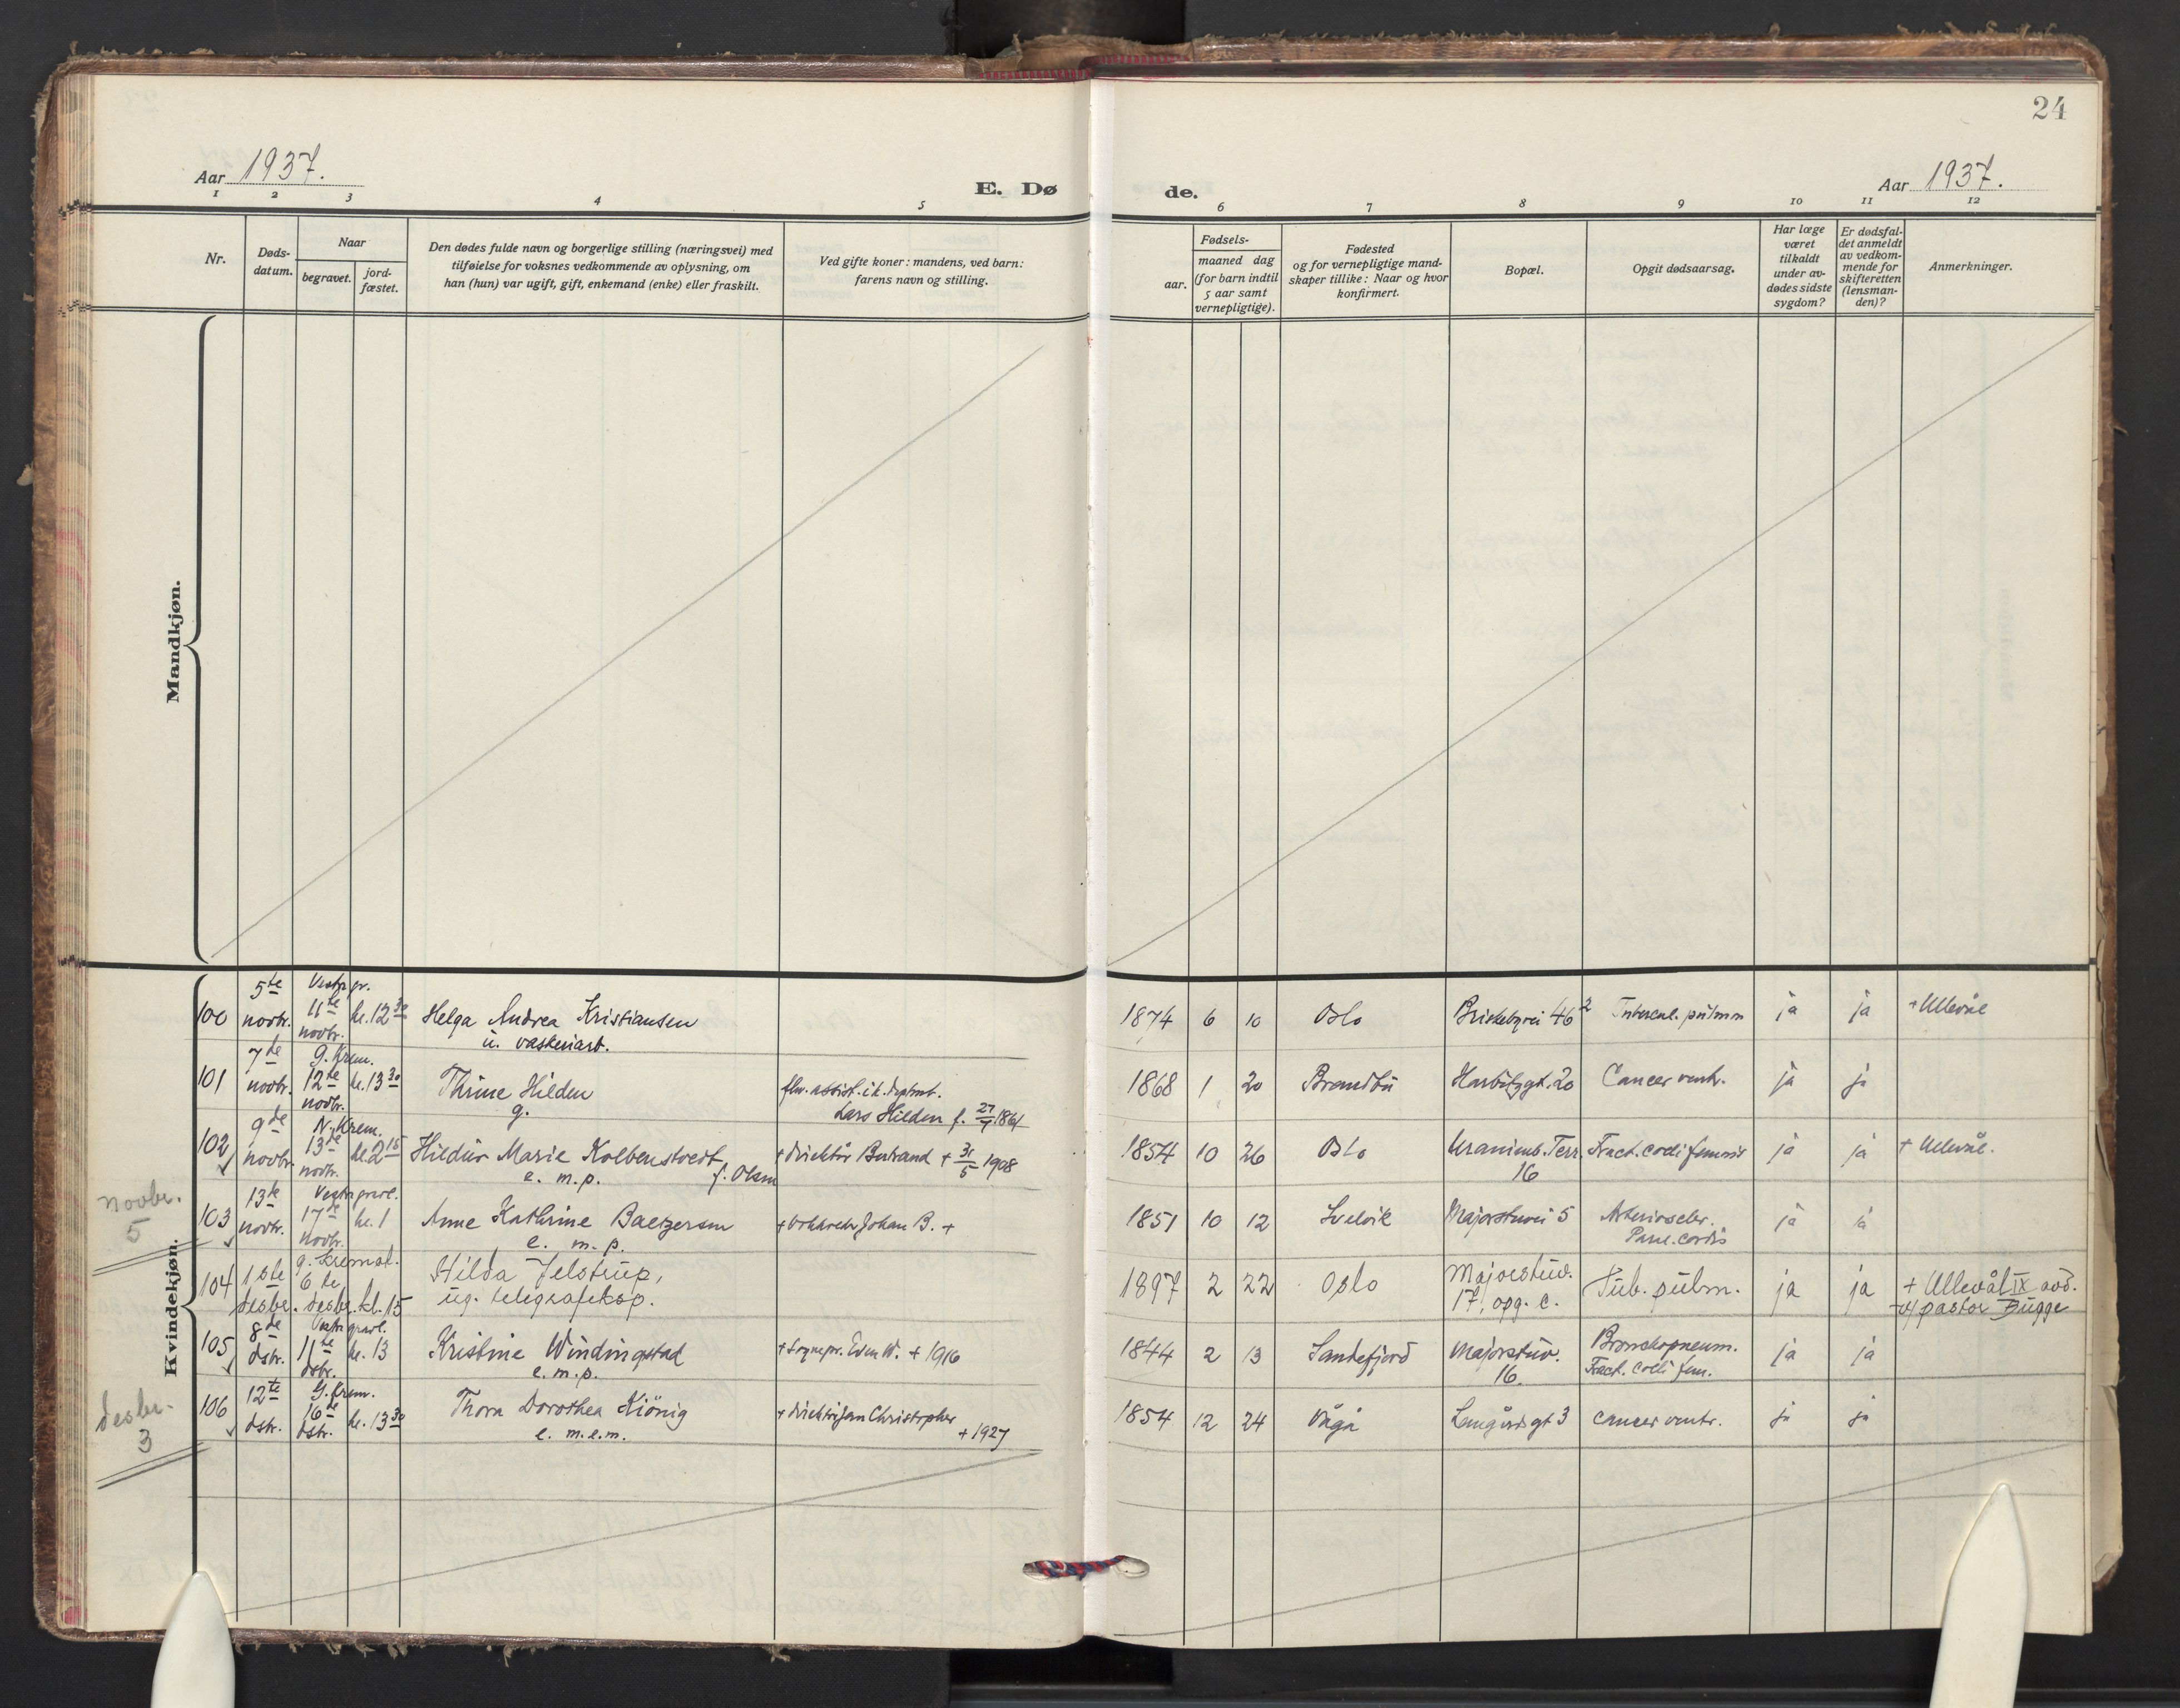 24
Aar 1937.
E. Dø
de.
Aar 1937.
1 2 3 4 5 6 7 8 9 10 11 12
Nr.
Døds-
datum.
Naar
begravet.
jord-
fæstet.
Den dødes fulde navn og borgerlige stilling (næringsvei) med
tilføielse for voksnes vedkommende av oplysning, om
han (hun) var ugift, gift, enkemand (enke) eller fraskilt.
Ved gifte koner: mandens, ved barn:
farens navn og stilling.
Fødsels-
aar.
maaned dag
(for barn indtil
5 aar samt
vernepligtige).
Fødested
og for vernepligtige mand-
skaper tillike: Naar og hvor
konfirmert.
Bopæl.
Opgit dødsaarsag.
Har læge
været
tilkaldt
under av-
dødes sidste
sygdom?
Er dødsfal-
det anmeldt
av vedkom-
mende for
skifteretten
(lensman-
den)?
Anmerkninger.
Mandkjøn.
Kvindekjøn.
5te
Vestre gr.
100 novbr. 11te novbr. kl. 12 30 Helga Andrea Kristiansen
u. vaskeriarb.
1874 6 10 Oslo Briskebyvei 46 2 Tubercul. pulmm ja ja + Ullevål
7de
G. Krem.
101 novbr. 12te novbr. kl. 13 30 Thrine Hilden
g.
Lars Hilden f. 27/7 1861
1868 1 20 Brandbu Harbitzgt. 20 Cancer ventr. ja ja
9de
N. Krem.
102 novbr. 13de novbr. kl. 2 15 Hildur Marie Kolbenstvedt
e. m. p. f. Olsen
+ direktør Bertrand + 31/5 1908
1854 10 26 Oslo Uranienb. Terr. 16 Fract. colli femoris ja ja + Ullevål.
novbr.
5
13de
Vestre gravl.
103 novbr. 17de novbr. kl. 1 Anne Kathrine Baetzersen
e. m. p.
Johan B. +
1851 10 12 Svelvik Majorstuvei 5 Arterioscler.
Paral. cordis
ja ja
g. kremat.
104 1ste desbr. 6te desbr. kl. 15 Hilda Jelstrup,
ug. telegrafeksp.
1897 2 22 Oslo Majorstuv.
17, opg. c.
Tub. pulm. ja ja + Ullevål IX avd.
v/ pastor Bugge
8de
Vestre gravl.
105 dsbr. 11te dsbr. kl. 13 Kristine Windingstad
e. m. p.
+ sognepr. Even W. + 1916
1844 2 13 Sandefjord Majorstuv.
16.
Bronchopneum.
Fract. colli fem.
ja ja
desbr.
3
12te
G. Krem.
106 dsbr. 16de dsbr. kl. 13 30 Thora Dorothea Kiönig
e. m. e. m.
+ direktør Jan Christopher
+ 1927
1854 12 24 Vågå Langårdsgt 3 cancer ventr. ja ja